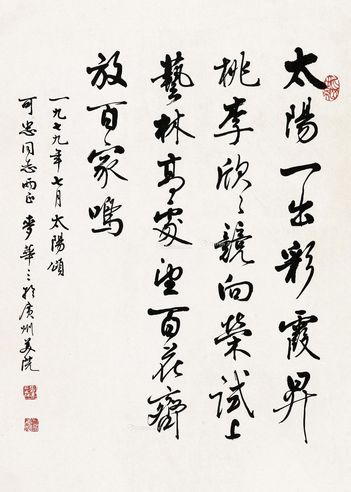 太陽一出彩霞昇
桃李欣々競向榮試上
藝林高處望百花齊
放百家鳴
一九七九年七月太陽頌
可忠同志兩正 麥華三於廣州美院